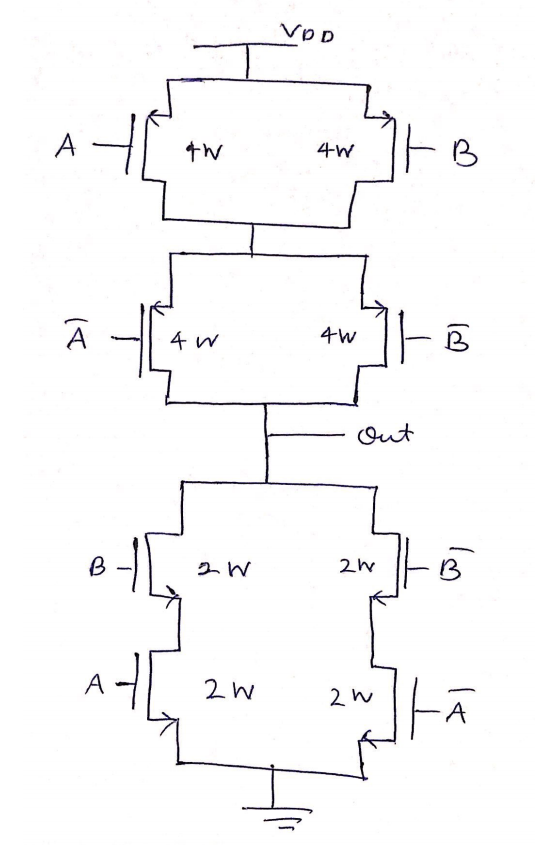 VDD
A 4W 4W B
A̅ 4W 4W B̅
Out
B 2W 2W B̅
A 2W 2W A̅